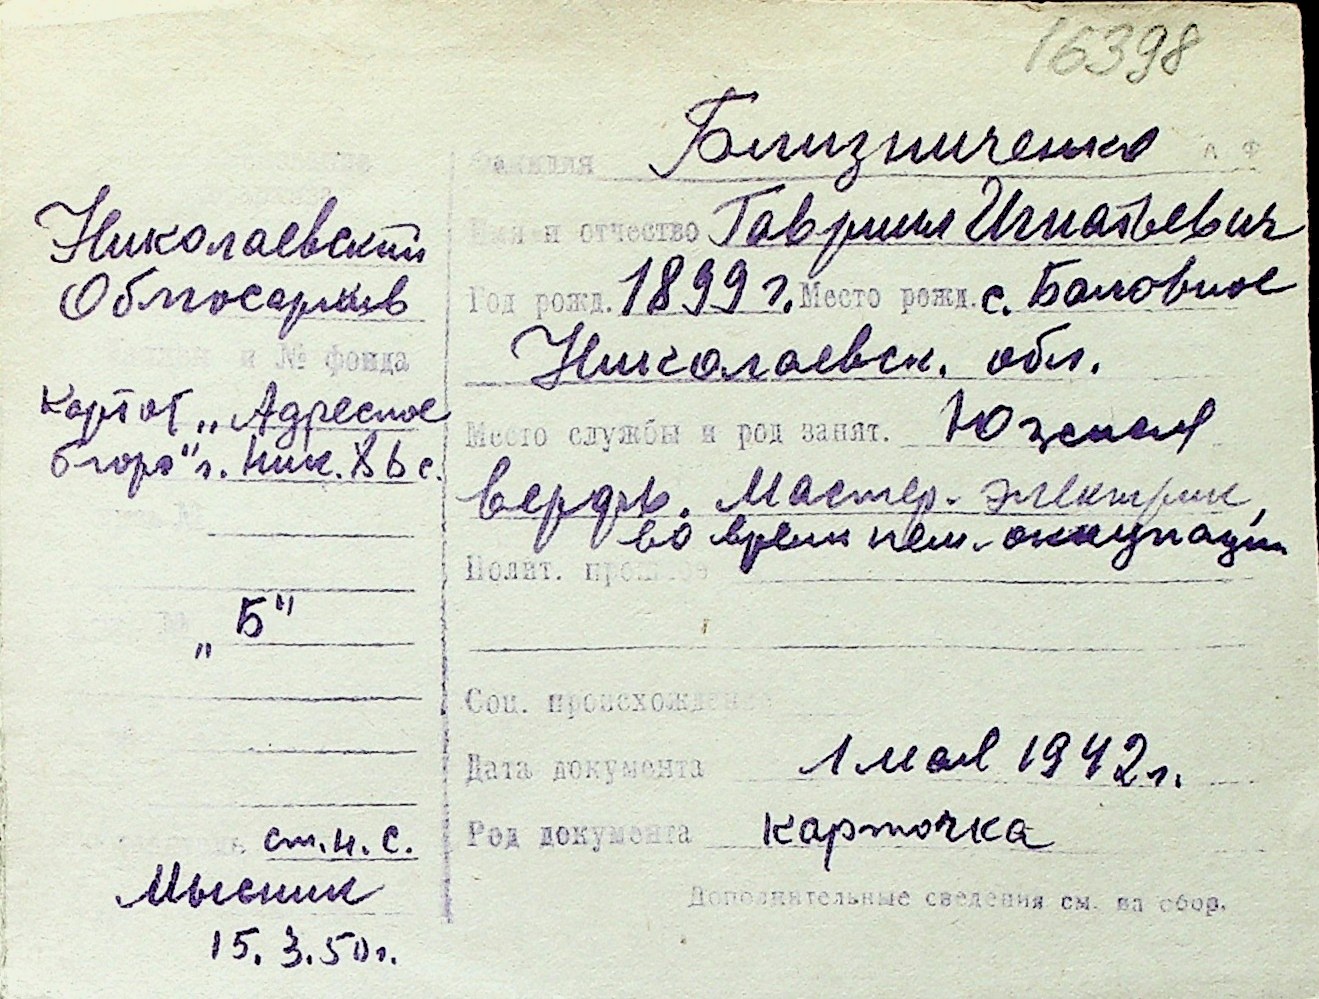 16398
Близниченко
Фамилия
А Ф
Николаевский
Облгосархив
Имя и отчество Гавриил Игнатьевич
Год рожд. 1899 г. Место рожд. с. Баловное
Николаевск. обл.
и № фонда
Картот „Адресное
бюро" г. Ник.
Место службы и род занят. Южная
верфь. Мастер-электрик
во время нем. оккупации
Полит. прошлое
„Б"
Соц. происхождение
Дата документа 1 мая 1942 г.
Род документа карточка
ст. н. с.
Мысник
15.3.50 г.
Дополнительные сведения см. на обор.